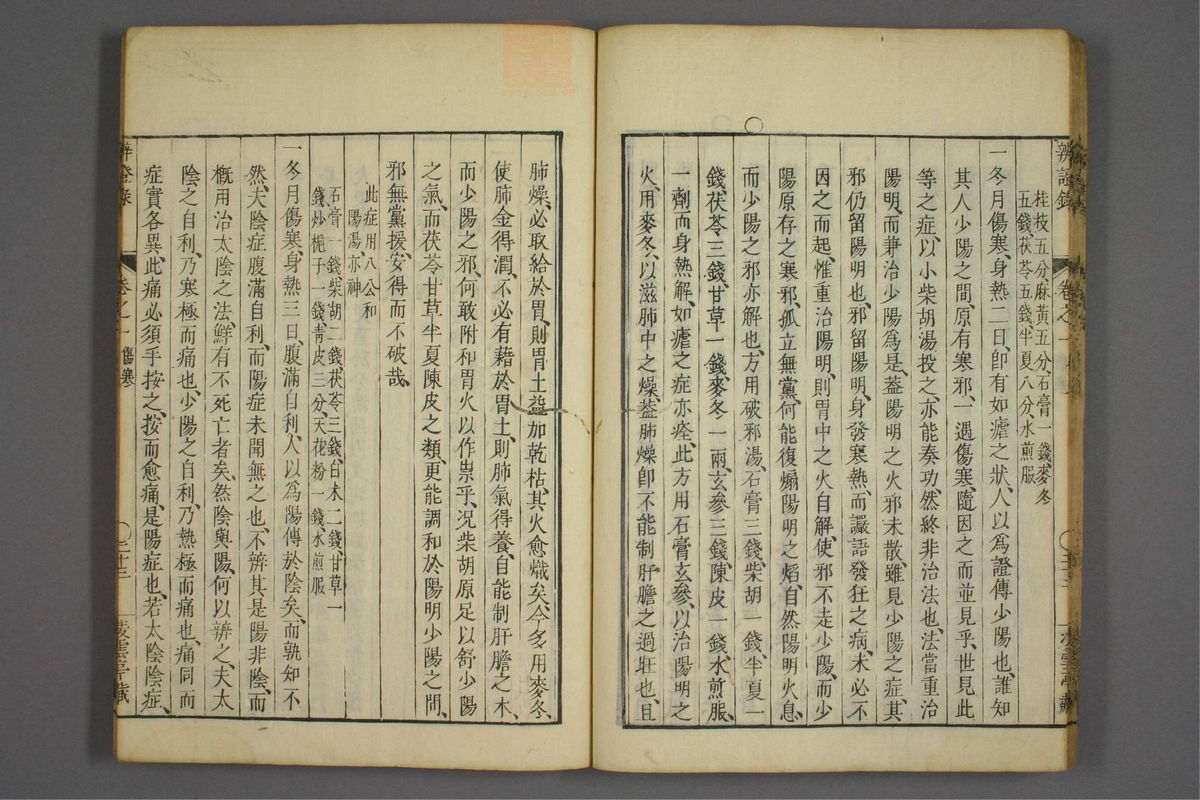 辨證錄
卷之一
桂枝五分麻黃五分、石膏一錢、麥冬
五錢、茯苓五錢、半夏八分、水煎服
一冬月傷寒、身熱二日、卽有如瘧之狀、人以爲證傳少陽也、誰知
其人少陽之間、原有寒邪、一遇傷寒、隨因之而並見乎、世見此
等之症、以小柴胡湯投之、亦能奏功、然終非治法也、法當重治
陽明、而兼治少陽爲是、葢陽明之火邪未散、雖見少陽之症、其
邪仍留陽明也、邪留陽明、身發寒熱、而讝語發狂之病、未必不
因之而起、惟重治陽明、則胃中之火自解、使邪不走少陽、而少
陽原存之寒邪、孤立無黨、何能復煽陽明之熖、自然陽明火息、
而少陽之邪亦解也、方用破邪湯、石膏三錢、柴胡一錢、半夏一
錢、茯苓三錢、甘草一錢、麥冬一兩、玄參三錢、陳皮一錢、水煎服、
一劑而身熱解、如瘧之症亦痊、此方用石膏玄參、以治陽明之
火、用麥冬、以滋肺中之燥、葢肺燥卽不能制肝膽之過旺也、且
肺燥、必取給於胃、則胃土益加乾枯、其火愈熾矣、今多用麥冬、
使肺金得潤、不必有藉於胃土、則肺氣得養、自能制肝膽之木、
而少陽之邪、何敢附和胃火以作祟乎、况柴胡原足以舒少陽
之氣、而茯苓甘草半夏陳皮之類、更能調和於陽明少陽之間、
邪無黨援、安得而不破哉、
此症用八公和
陽湯亦神
石膏一錢、柴胡二錢、茯苓三錢、白术二錢、甘草一
錢、炒梔子一錢、靑皮三分、天花粉一錢、水煎服
一冬月傷寒、身熱三日、腹滿自利、人以爲陽傳於陰矣、而孰知不
然、夫陰症腹滿自利、而陽症未聞無之也、不辨其是陽非陰、而
概用治太陰之法、鮮有不死亡者矣、然陰與陽、何以辨之、夫太
陰之自利、乃寒極而痛也、少陽之自利、乃熱極而痛也、痛同而
症實各異、此痛必須手按之、按而愈痛、是陽症也、若太陰陰症、
辨證錄
卷之一
傷寒
二十三
凌雲亭藏